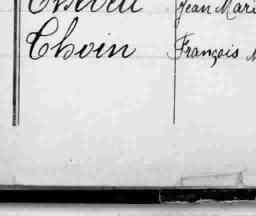 Jean Mari
Choin François